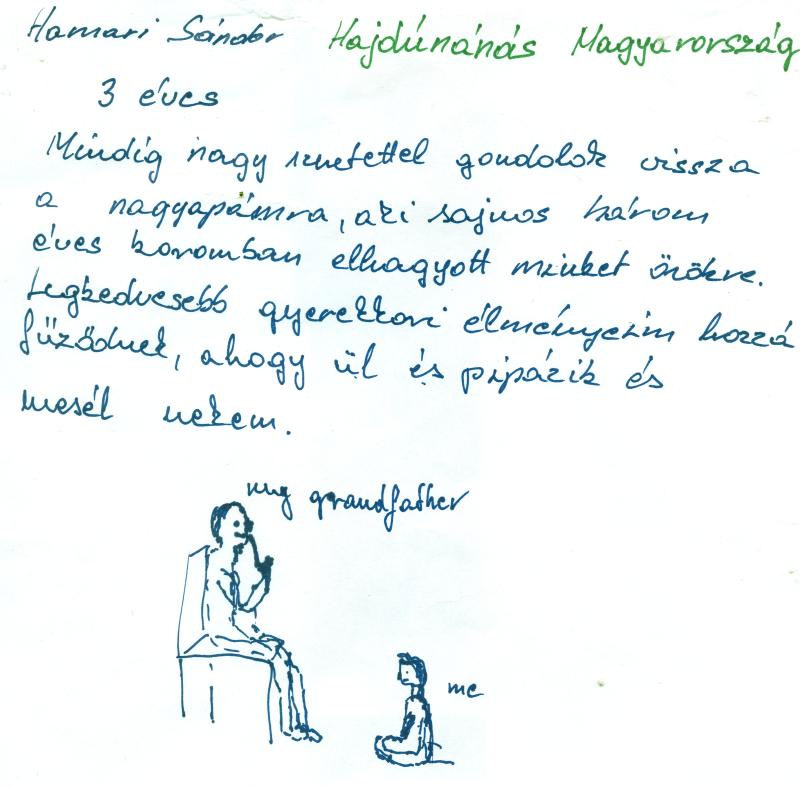 Hamari Sándor Hajdúnánás Magyarország
3 éves
Mindig nagy szeretettel gondolok vissza
a nagyapámra, aki sajnos három
éves koromban elhagyott minket örökre.
Legkedvesebb gyerekkori élményeim hozzá
fűződnek, ahogy ül és pipázik és
mesél nekem.
my grandfather
me